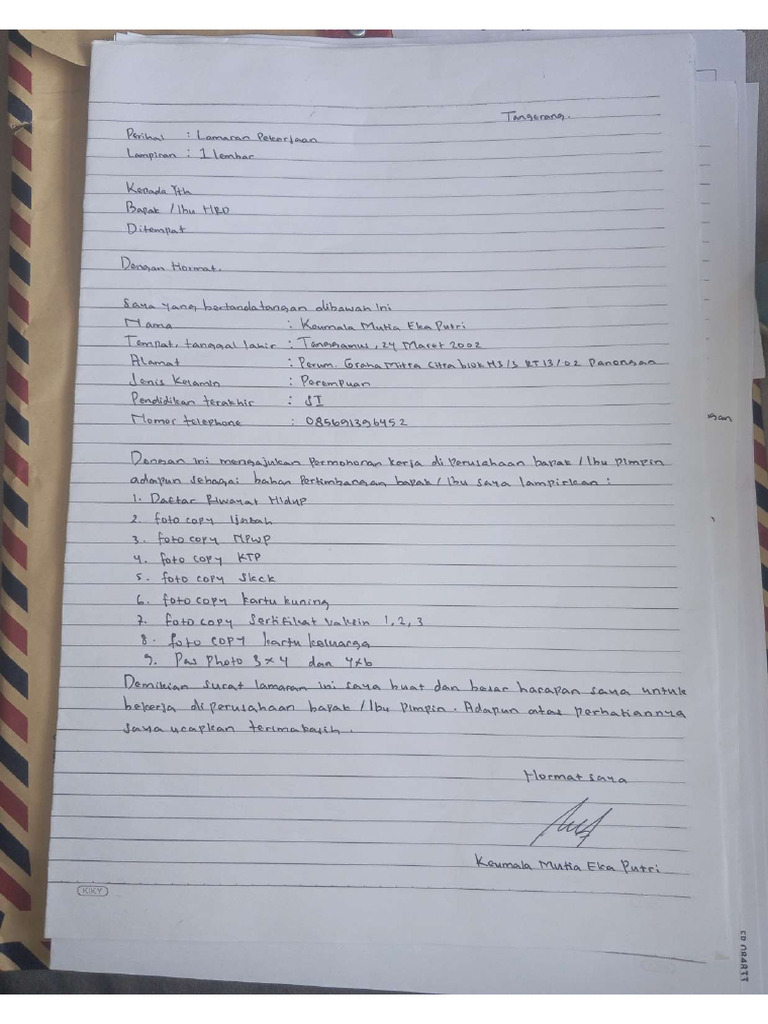 Tangerang.
Perihal : Lamaran Pekerjaan
Lampiran : 1 lembar
Kepada Yth
Bapak / Ibu HRD
Ditempat
Dengan Hormat.
Saya yang bertandatangan dibawah ini
Nama : Keumala Mutia Eka Putri
Tempat, tanggal lahir : Tanggamus, 24 Maret 2002
Alamat : Perum. Graha Mitra Citra blok M3/5 RT 13/02 Panongan
Jenis Kelamin : Perempuan
Pendidikan terakhir : S1
Nomor telephone : 085691396452
Dengan ini mengajukan Permohonan kerja di perusahaan bapak / Ibu Pimpin
adapun sebagai bahan Pertimbangan bapak / Ibu saya lampirkan :
1. Daftar Riwayat Hidup
2. foto copy Ijazah
3. foto copy NPWP
4. foto copy KTP
5. foto copy Skck
6. foto copy kartu kuning
7. foto copy Sertifikat vaksin 1, 2, 3
8. foto copy kartu keluarga
9. Pas Photo 3x4 dan 4x6
Demikian surat lamaran ini saya buat dan besar harapan saya untuk
bekerja di perusahaan bapak / Ibu Pimpin. Adapun atas perhatiannya
saya ucapkan terimakasih.
Hormat saya
Keumala Mutia Eka Putri
KIKY